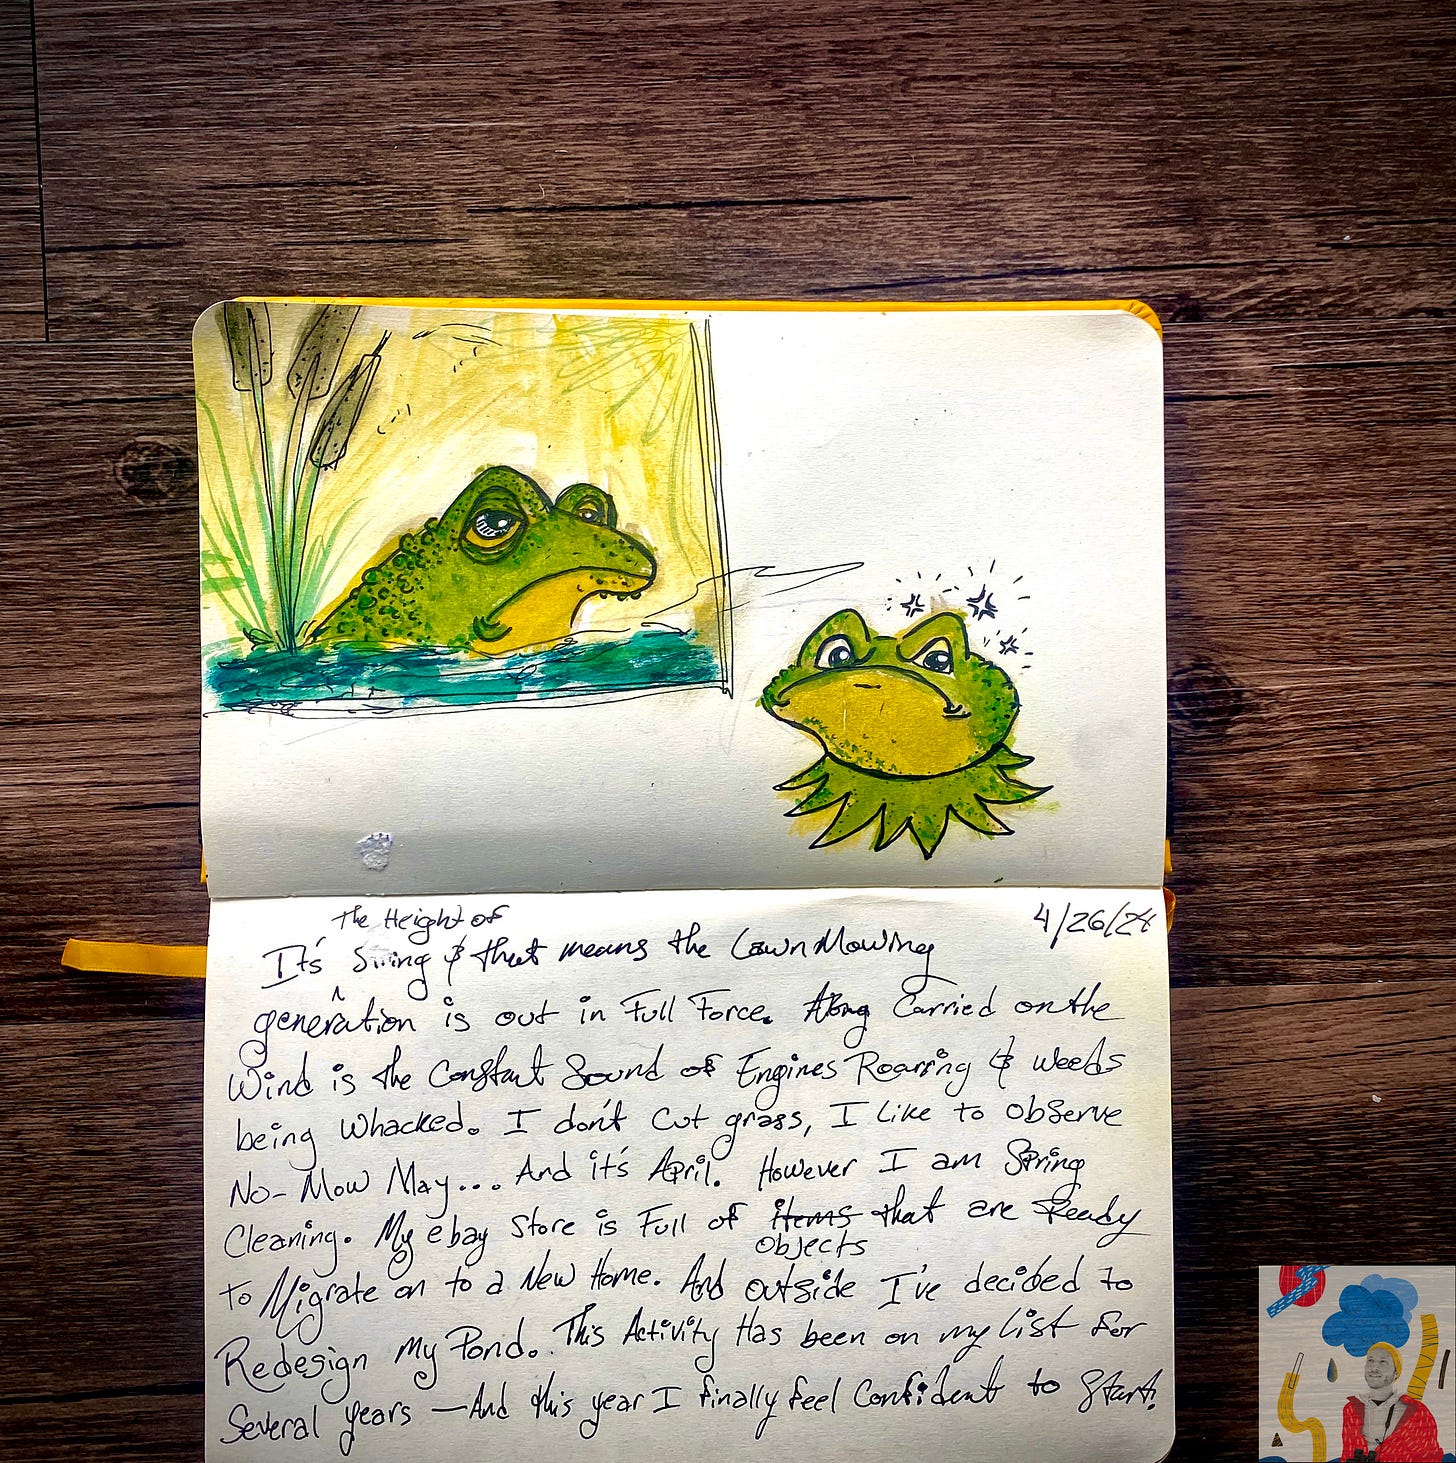 The Height of
4/26/24
It's Spring & that means the Lawn Mowing
generation is out in Full Force. Along Carried on the
Wind is the Constant Sound of Engines Roaring & weeds
being whacked. I don't Cut grass, I like to observe
No-Mow May... And it's April. However I am Spring
Cleaning. My ebay Store is Full of items that are Ready
objects
to Migrate on to a New Home. And outside I've decided to
Redesign my Pond. This Activity Has been on my list for
Several years —And this year I finally feel Confident to Start!